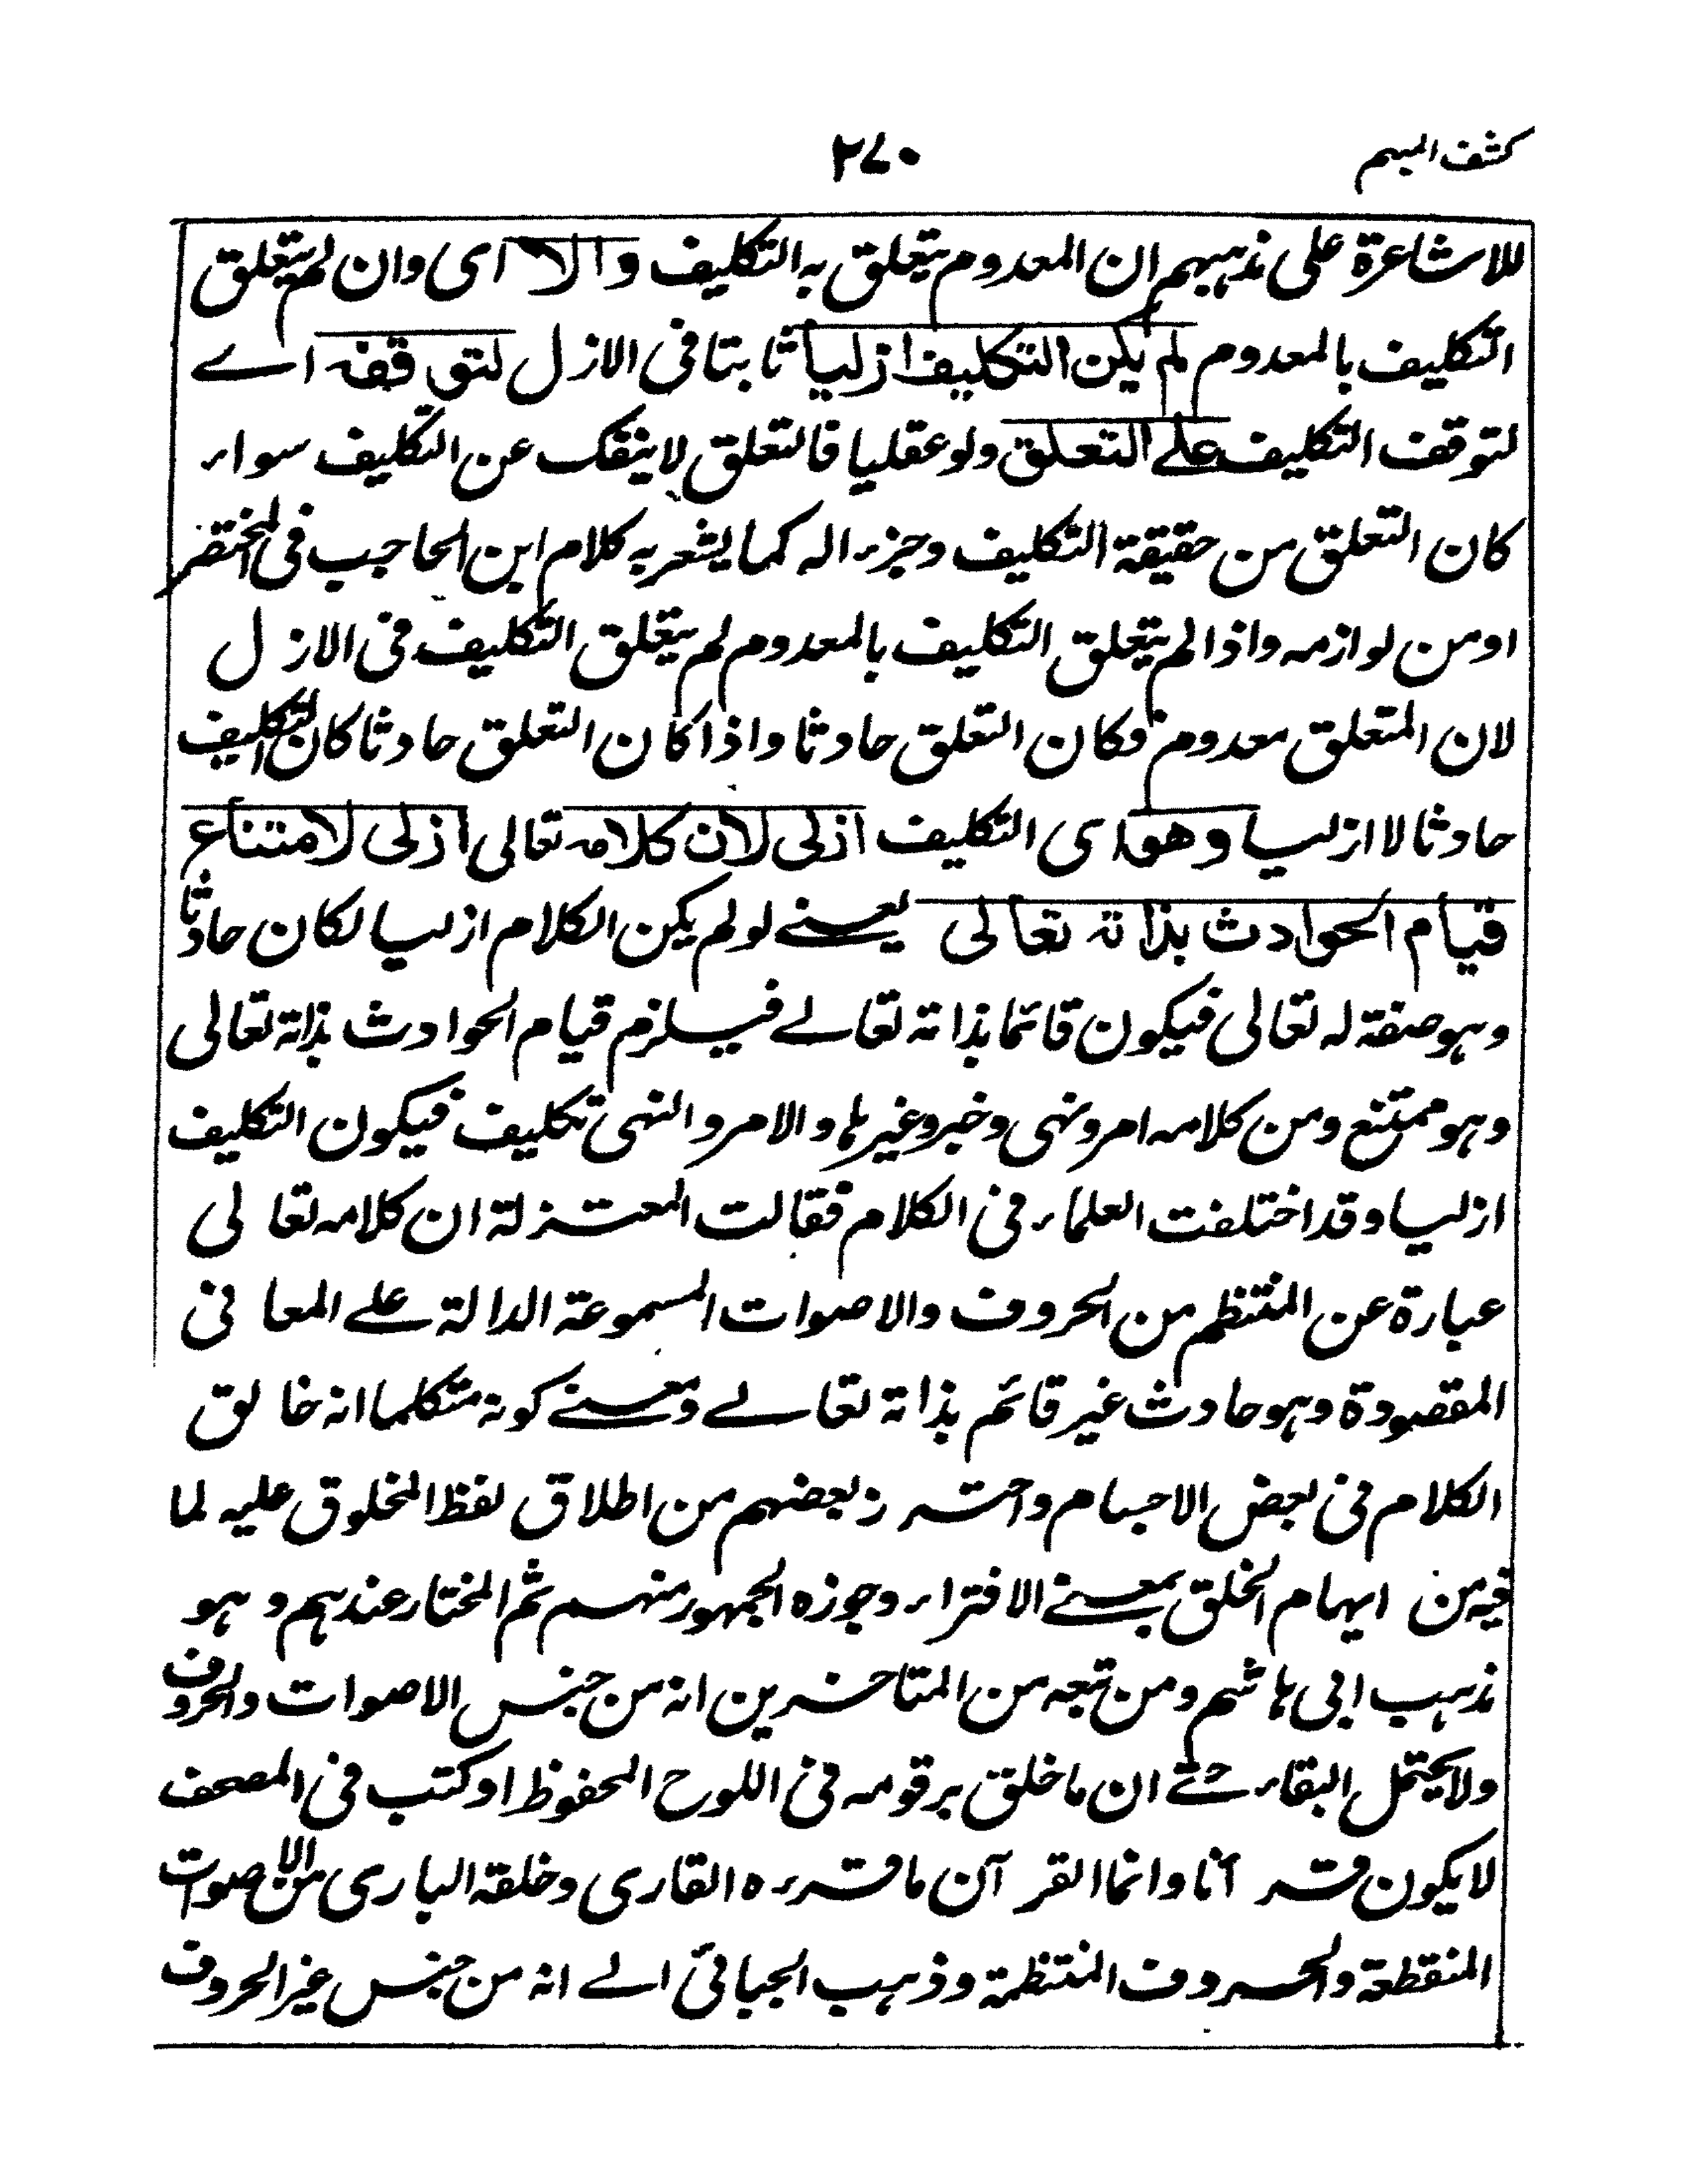 كشف المبهم
٢٧٠
للاشاعرة على مذهبهم ان المعدوم يتعلق به التكليف والا اى وان لم يتعلق
التكليف بالمعدوم لم يكن التكليف ازليا ثابتا فى الازل لتوقفه اے
لتوقف التكليف علے التعلق ولو عقليا فالتعلق لا ينفك عن التكليف سواء
كان التعلق من حقيقة التكليف وجزء اله كما يشعر به كلام ابن الحاجب فى المختصر
او من لوازمه واذا لم يتعلق التكليف بالمعدوم لم يتعلق التكليف فى الازل
لان المتعلق معدوم فكان التعلق حادثا واذا كان التعلق حادثا كان التكليف
حادثا لا ازليا وهو اى التكليف ازلى لان كلامه تعالى ازلى لامتناع
قيام الحوادث بذاته تعالى يعنے لو لم يكن الكلام ازليا لكان حادثا
وهو صفة له تعالى فيكون قائما بذاته تعالے فيلزم قيام الحوادث بذاته تعالى
وهو ممتنع ومن كلامه امر ونهى وخبر وغيرها والامر والنهى تكليف فيكون التكليف
ازليا وقد اختلفت العلماء فى الكلام فقالت المعتزلة ان كلامه تعالى
عبارة عن المنتظم من الحروف والاصوات المسموعة الدالة علے المعانى
المقصودة وهو حادث غير قائم بذاته تعالے ومعنے كونه متكلما انه خالق
الكلام فى بعض الاجسام واحترز بعضهم من اطلاق لفظ المخلوق عليه لما
فيه من ايهام الخلق بمعنے الافتراء وجوزه الجمهور منهم ثم المختار عندهم وهو
مذهب ابى هاشم ومن تبعه من المتاخرين انه من جنس الاصوات والحروف
ولا يحتمل البقاء حتے ان ما خلق برقومه فى اللوح المحفوظ او كتب فى المصحف
لا يكون قرآنا وانما القرآن ما قرءه القارى وخلقه البارى من الاصوات
المنقطعة والحروف المنتظمة وذهب الجبائى الے انه من جنس غير الحروف